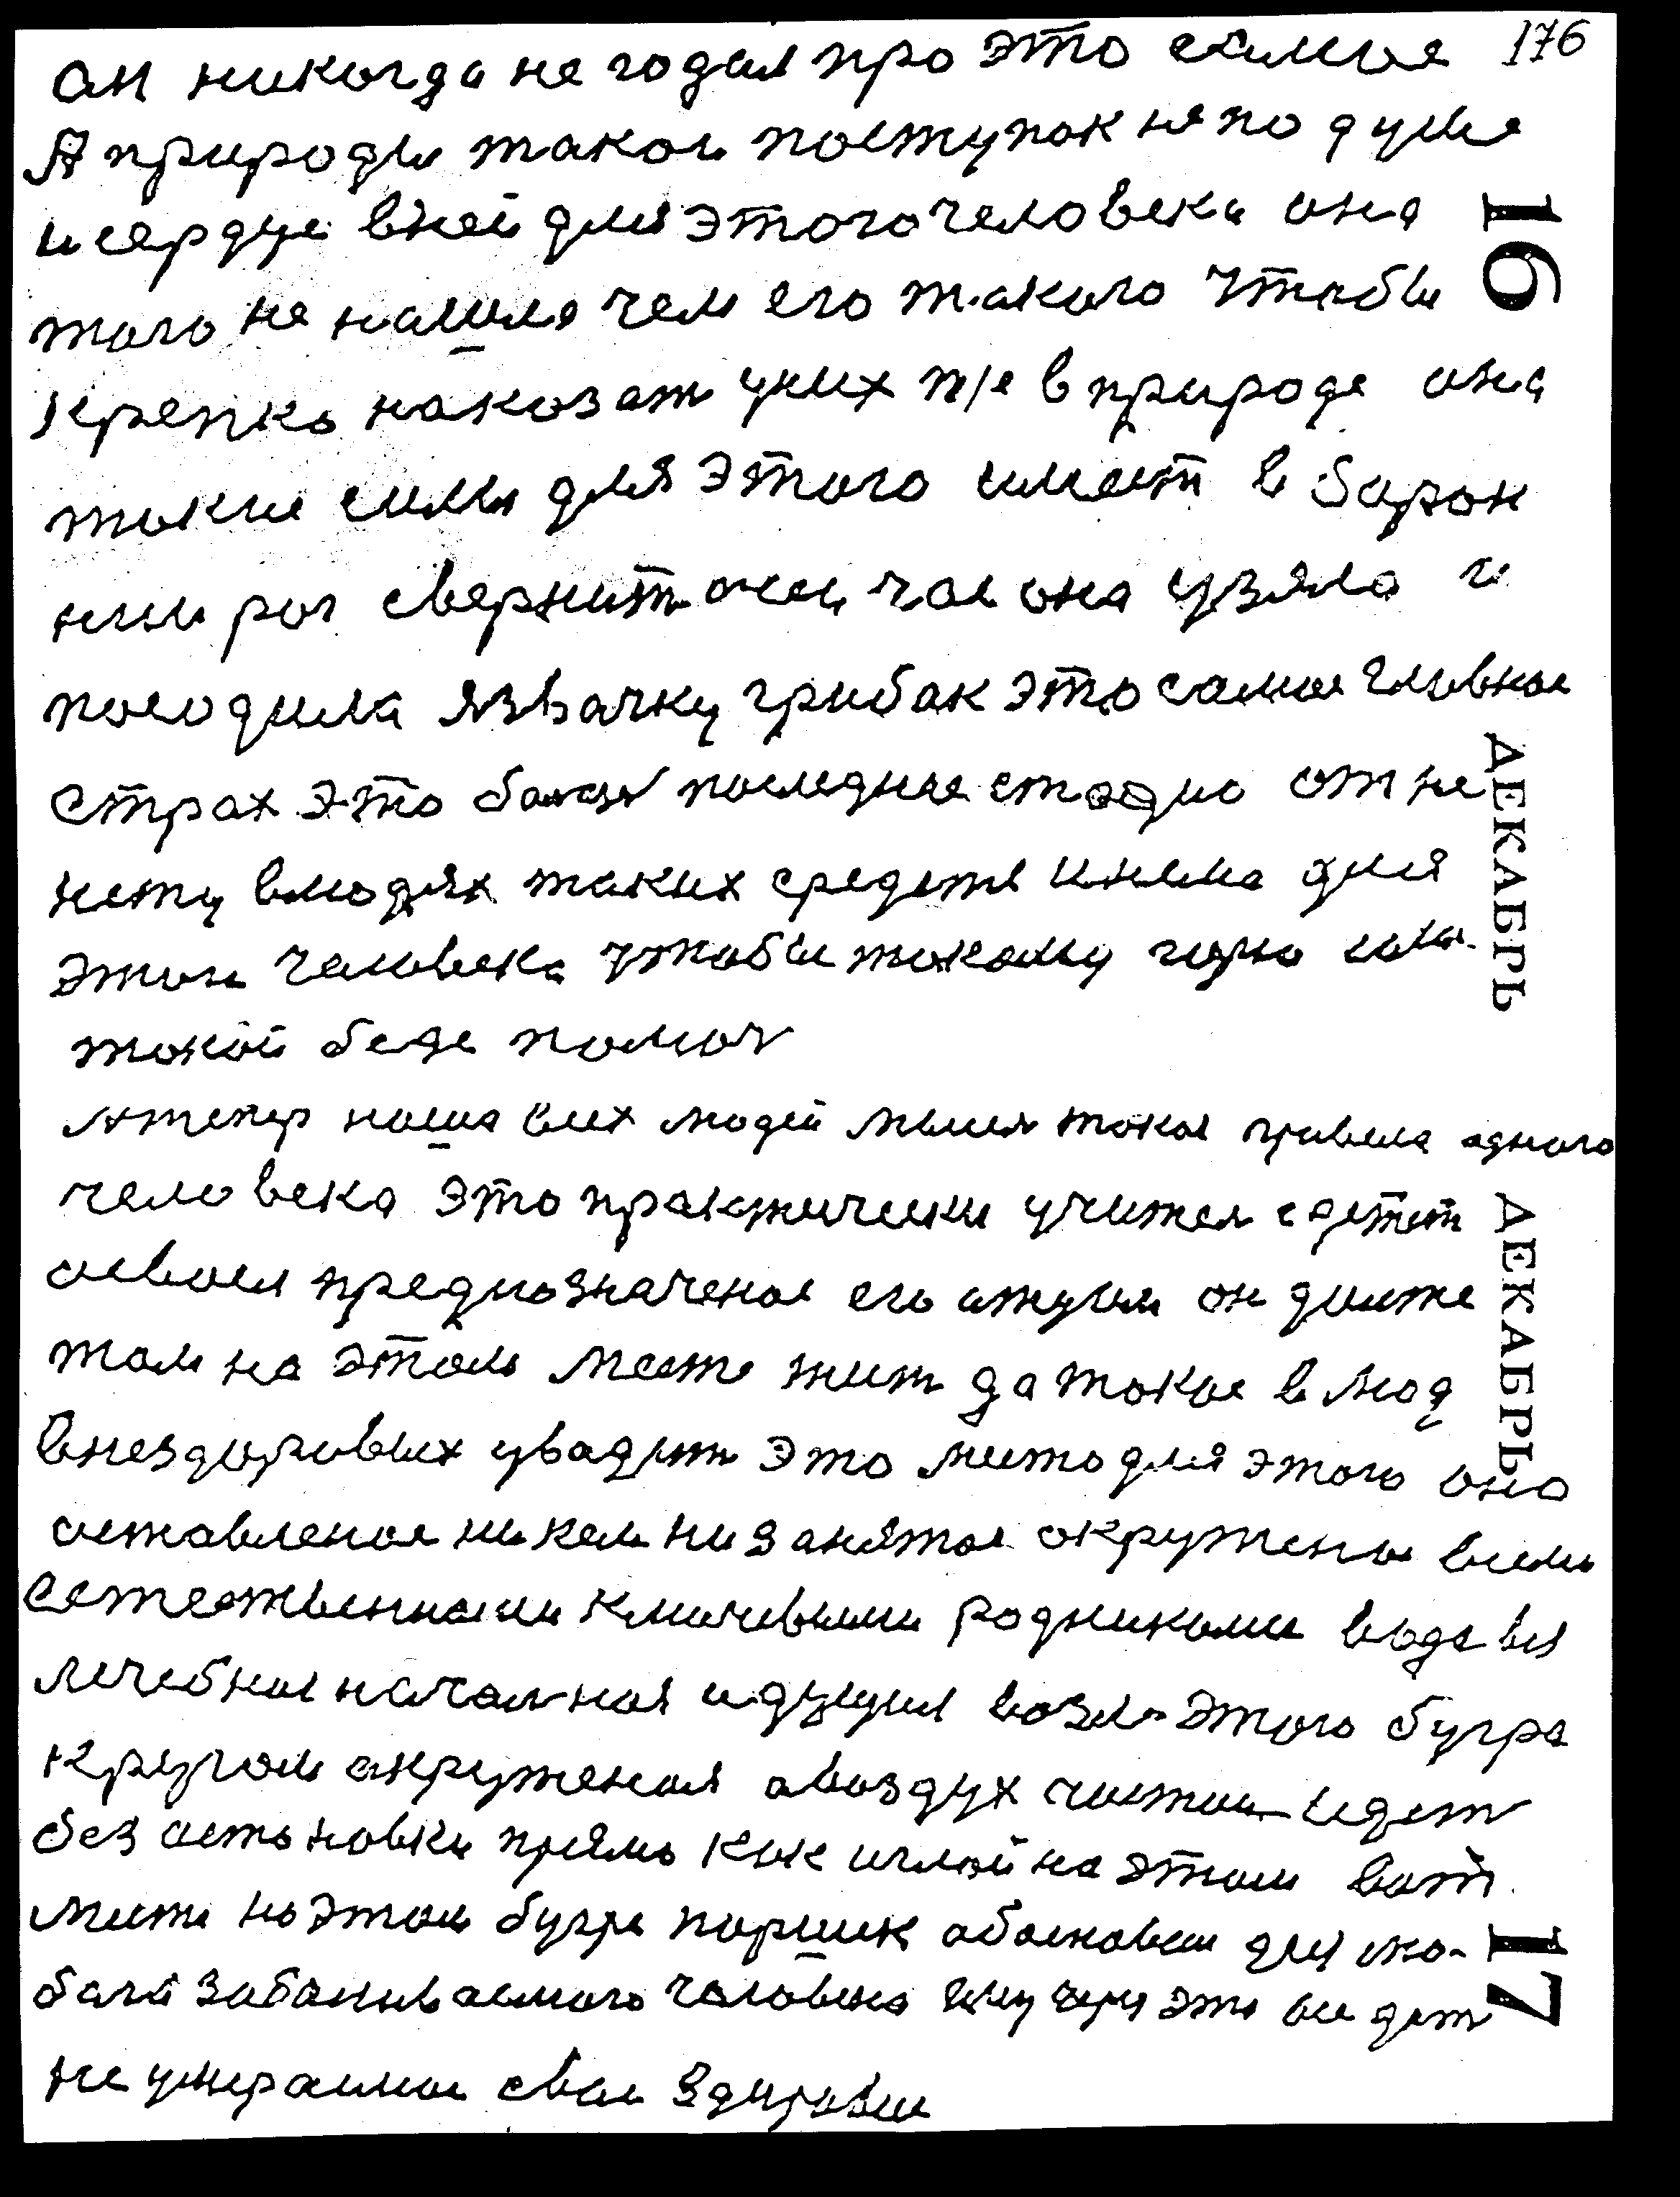 176
он никогда не годал про это самое
А природы такои поступок не по душе
и сердце вней для этого человека она
того не нашла чем его такого чтобы
крепко наказат уних т/е в природе она
такие силы для этого имеет в баран
нии рог свернит она узяла и
посодила язвачку грибак это самое главное
страх это последнее стадио от не
нету влюдях таких средств инема для
этои человека чтобы такому горю или
такой беде помоч
Атепер наша всех людей мысля такая правела одного
человека это практически учител
предназначеное его он
там на этом месте жит да такое в люд
внездоровых увадит это место для этого оно
оставленое никем низанятое окружены всеми
естественными ключевыми родниками вода вся
лечебное начальная идущия возле этого бугра
кругом акруженая авоздух чистои идет
без астоновки прямо как иглой на этом вот
мести на этом бугре поршек для
забаливаемого человека ему это все дет
не умраемое свое здоровье
16
ДЕКАБРЬ
ДЕКАБРЬ
17